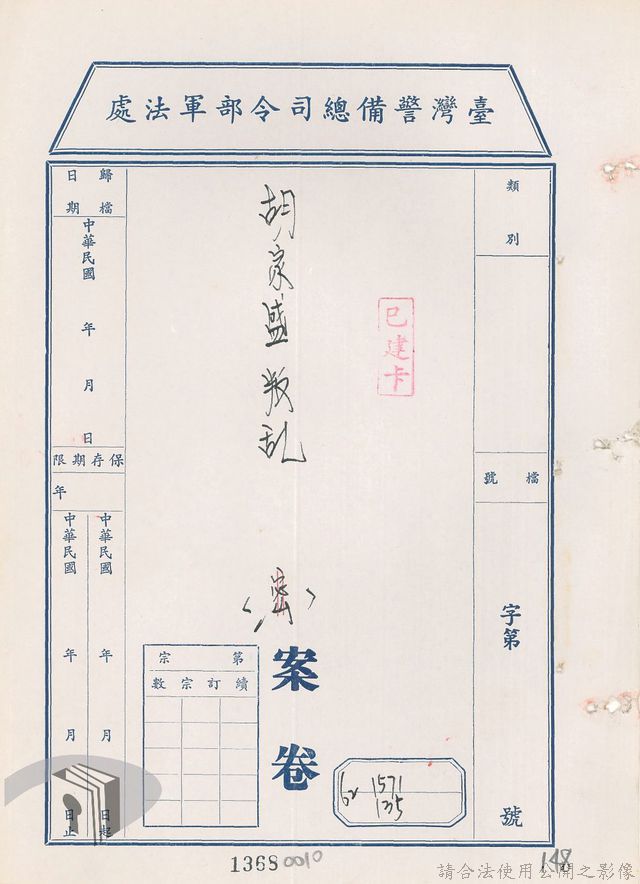 臺灣警備總司令部軍法處
類別
檔號
字第
號
已建卡
胡家盛叛乱
〈密〉
案卷
62 1571
135
第宗
續訂宗數
歸檔日期
中華民國
年
月
日
保存期限
年
中華民國
年
月
日起
中華民國
年
月
日止
1368 0010
148
請合法使用公開之影像